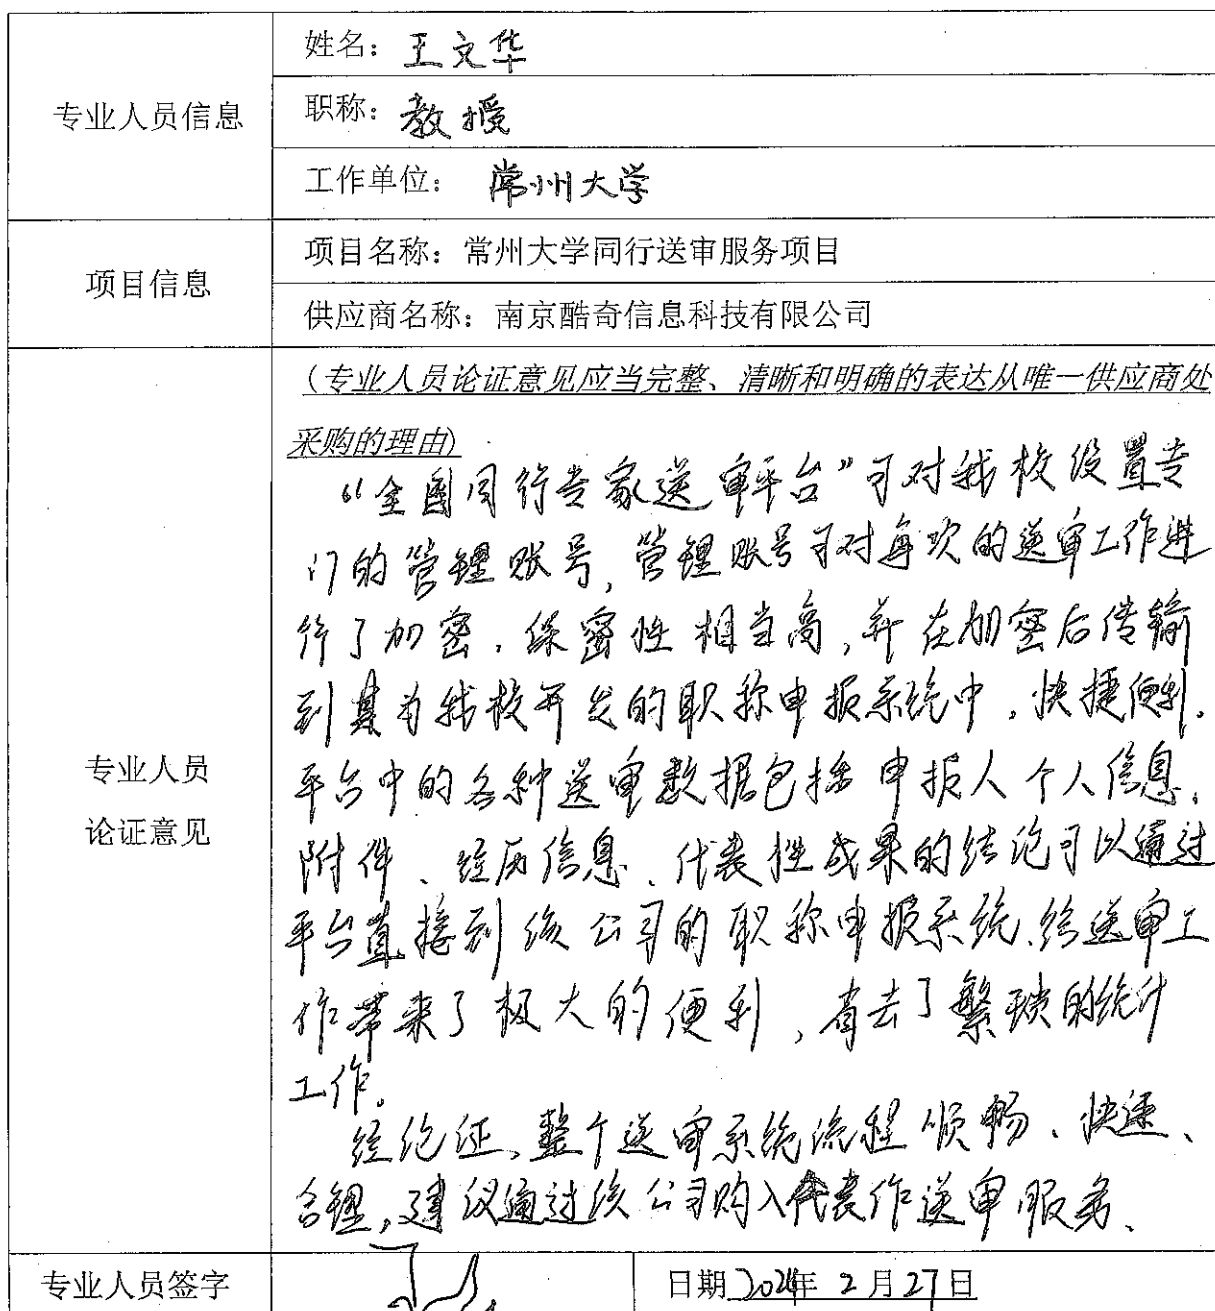 专业人员信息
姓名：王文华
职称：教授
工作单位：常州大学
项目信息
项目名称：常州大学同行送审服务项目
供应商名称：南京酷奇信息科技有限公司
专业人员
论证意见
（专业人员论证意见应当完整、清晰和明确的表达从唯一供应商处
采购的理由)
“全国同行专家送审平台”可对我校设置专
门的管理账号，管理账号可对每次的送审工作进
行了加密，保密性相当高，并在加密后传输
到其为我校开发的职称申报系统中，快捷便利。
平台中的各种送审数据包括申报人个人信息、
附件、经历信息、代表性成果的结论可以通过
平台直接到该公司的职称申报系统，给送审工
作带来了极大的便利，省去了繁琐的统计
工作。
经论证，整个送审系统流程顺畅、快速、
合理，建议通过该公司购入代表作送审服务。
专业人员签字
日期2024年2月27日